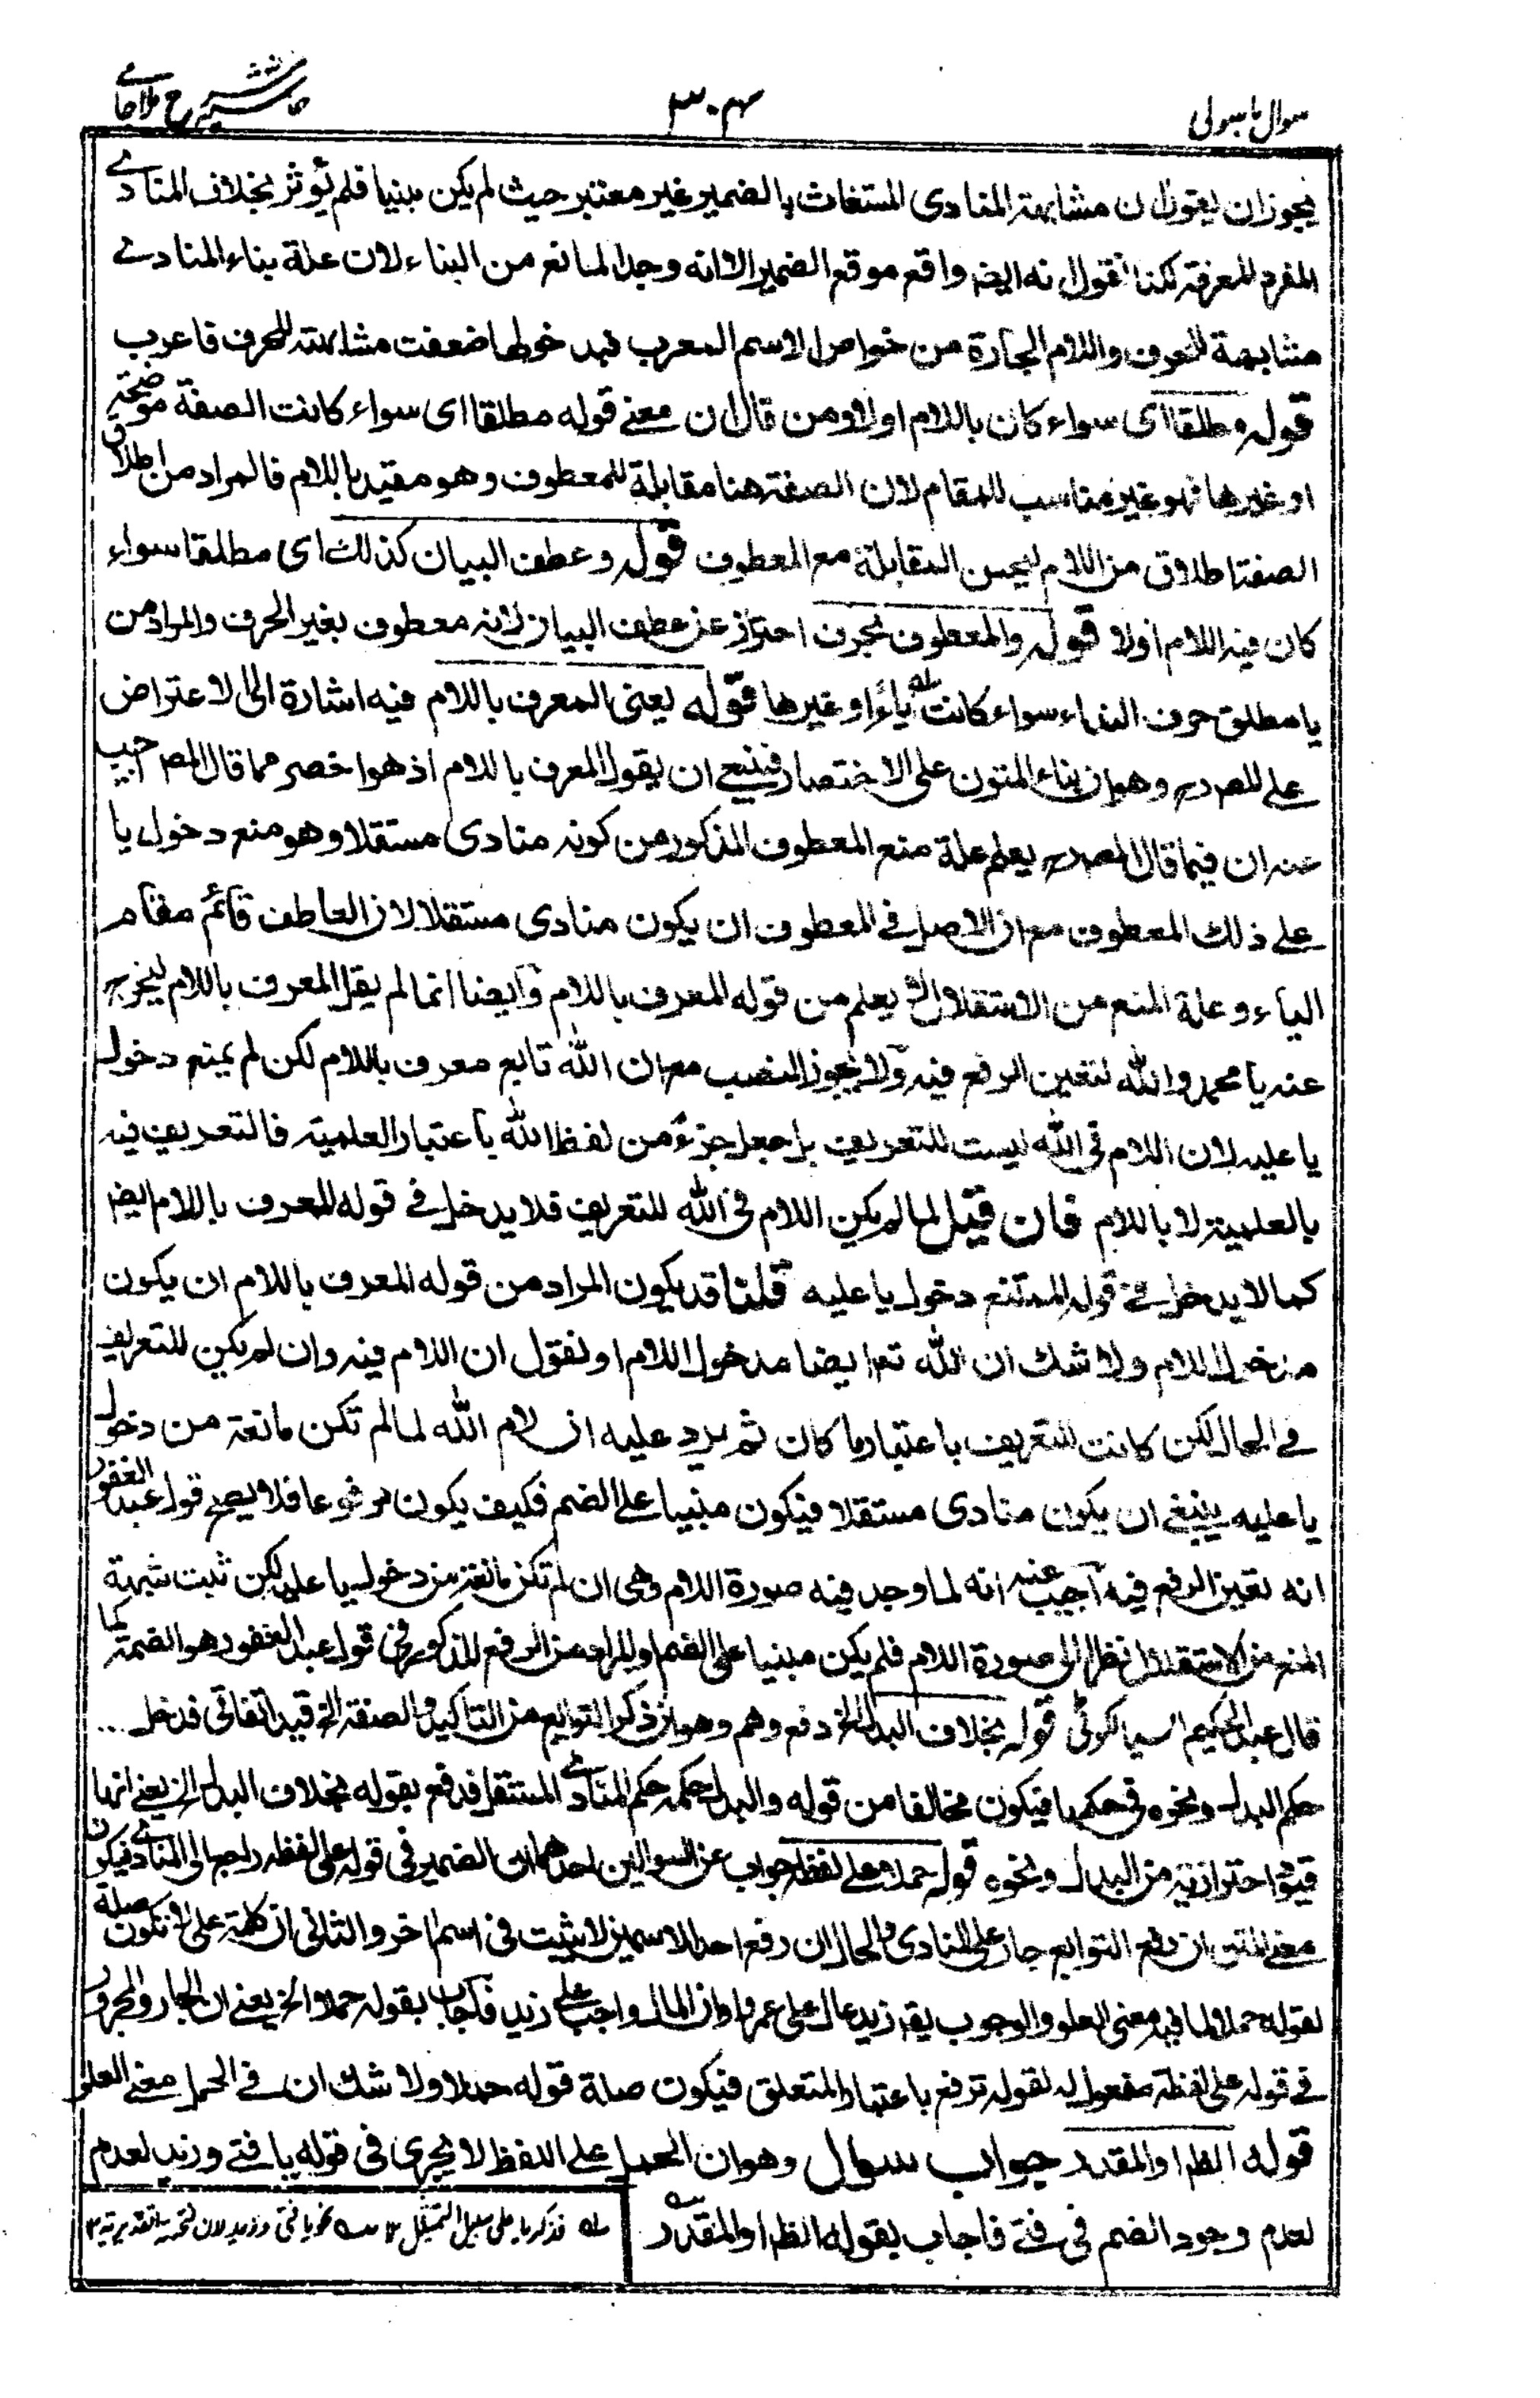 سوال باسولی
۳۰۴
حاشیہ شرح ملاجامے
یجوز ان یقول ان مشابهة المنادی المستغاث بالضمیر غیر معتبر حیث لم یکن مبنیا فلم یؤثر بخلاف المنادے
المفرد المعرفة لکنا نقول انه ایضہ واقع موقع الضمیر الا انه وجد المانع من البناء لان علة بناء المنادے
مشابهة للحرف واللام الجارة من خواص الاسم المعرب فبدخولها ضعفت مشابهته للحرف فاعرب
قوله مطلقا ای سواء کان باللام اولا ومن قال ان معنے قوله مطلقا ای سواء کانت الصفة موضحة
او غیرها فهو غیر مناسب للمقام لان الصفة هنا مقابلة للمعطوف وهو مقید باللام فالمراد من اطلاق
الصفة اطلاق من اللام لیحسن المقابلة مع المعطوف قوله وعطف البیان کذلك ای مطلقا سواء
کان فیه اللام اولا قوله والمعطوف بحرف احتراز عن عطف البیان لانه معطوف بغیر الحرف والمراد من
یا مطلق حرف النداء سواء کانت یاء او غیرها قوله یعنی المعرف باللام فیه اشارة الی الاعتراض
علی المصرح وهو ان بناء المتون علی الاختصار فینبغے ان یقول المعرف باللام اذ هو اخصر مما قال المصر اجیب
عنه ان فیما قال المصرح یعلم علة منع المعطوف المذکور من کونه منادی مستقلا وهو منع دخول یا
علی ذلك المعطوف مع ان الاصل فی المعطوف ان یکون منادی مستقلا لان العاطف قائم مقام
الیاء وعلة المنع من الاستقلال لا یعلم من قوله المعرف باللام وایضا انما لم یقل المعرف باللام لیخرج
عنه یا محمد والله لتعین الرفع فیه ولا یجوز النصب مع ان الله تابع معرف باللام لکن لم یمنع دخول
یا علیه لان اللام فی الله لیست للتعریف بل جعل جزء من لفظ الله باعتبار العلمیة فالتعریف فیه
بالعلمیة لا باللام فان قیل لما لم یکن اللام فی الله للتعریف فلا یدخل فے قوله المعرف باللام ایضہ
کما لا یدخل فے قوله الممتنع دخول یا علیه قلنا قد یکون المراد من قوله المعرف باللام ان یکون
مدخول اللام ولا شك ان الله تعہ ایضا مدخول اللام او نقول ان اللام فیه وان لم یکن للتعریف
فے الحال لکن کانت للتعریف باعتبار ما کان ثم یرد علیه ان لام الله لما لم تکن مانعة من دخول
یا علیه ینبغے ان یکون منادی مستقلا فیکون مبنیا علی الضم فکیف یکون مرفوعا فلا یصح قول عبد الغفور
انه تعین الرفع فیه اجیب عنه انه لما وجد فیه صورة اللام وهی ان لم تکن مانعة من دخول یا علیه لکن ثبت شبهة
المنع من الاستقلال نظرا الی صورة اللام فلم یکن مبنیا علی الضم او المراد من الرفع المذکور فی قول عبد الغفور هو الضمة کما
قال عبد الحکیم السیالکوٹی قوله بخلاف البدل الخ دفع وهم وهو ان ذکر التوابع من التاکید والصفة الخ قید اتفاقی فدخل ...
حکم البدل ونحوه فی حکمها فیکون مخالفا من قوله والبدل حکمه حکم المنادے المستقل فدفع بقوله بخلاف البدل الخ یعنے انها
قیود احترازیة من البدل ونحوه قوله حملا علی لفظه جواب عن السوالین احدهما ان الضمیر فی قوله علی لفظه راجع الی المنادے فیکون
معنے المتن ان رفع التوابع جار علی المنادی والحال ان رفع احد الاسمین لا یثبت فی اسم اخر والثانی ان کلمة علی لا تکون صلة
لقوله حملا لما فیه معنی العلو والوجوب یقہ زید عال علی عمرو وان المال واجب علی زید فاجاب بقوله حملا الخ یعنے ان الجار والمجرور
فے قوله علی لفظه مفعول له لقوله ترفع باعتبار المتعلق فیکون صلة قوله حملا ولا شك ان فے الحمل معنے العلو
قوله الظاهر او المقدر جواب سوال وهو ان الحمل علی اللفظ لا یجری فی قوله یا فتے وزید لعدم
لعدم وجود الضم فی فتے فاجاب بقوله الظاهر او المقدر
سلہ فذکر یا علی سبیل التمثیل ۱۲ سہ نحو یا فتی وزید لان ضمته تقدیریة ۱۲